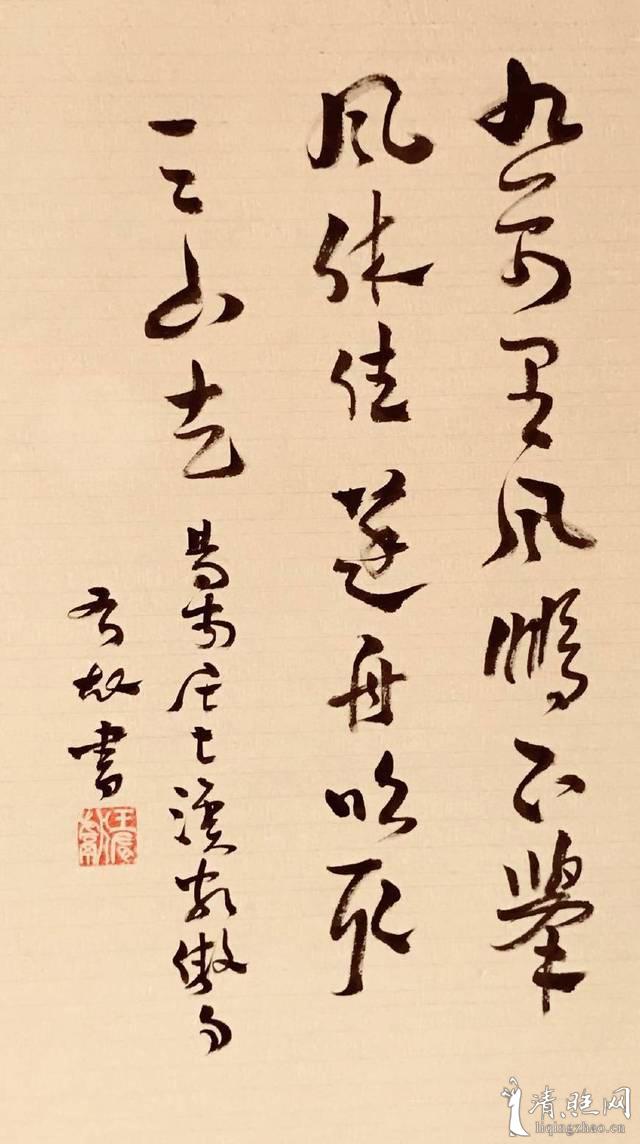 九萬里風鵬正舉
風休住蓬舟吹取
三山去
易安居士漁家傲句
書
清照网
liqingzhao.cn